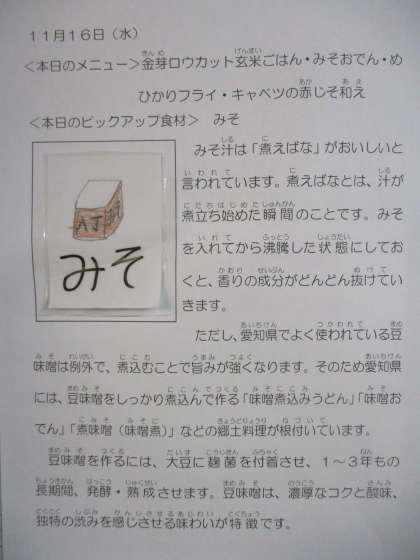 11月16日（水）
＜本日のメニュー＞金芽ロウカット玄米ごはん・みそおでん・め
ひかりフライ・キャベツの赤じそ和え
＜本日のピックアップ食材＞　みそ
みそ汁は「煮えばな」がおいしいと
言われています。煮えばなとは、汁が
煮立ち始めた瞬間のことです。みそ
を入れてから沸騰した状態にしてお
くと、香りの成分がどんどん抜けてい
きます。
みそ
ただし、愛知県でよく使われている豆
味噌は例外で、煮込むことで旨みが強くなります。そのため愛知県
には、豆味噌をしっかり煮込んで作る「味噌煮込みうどん」「味噌お
でん」「煮味噌（味噌煮）」などの郷土料理が根付いています。
豆味噌を作るには、大豆に麹菌を付着させ、1～3年もの
長期間、発酵・熟成させます。豆味噌は、濃厚なコクと酸味、
独特の渋みを感じさせる味わいが特徴です。